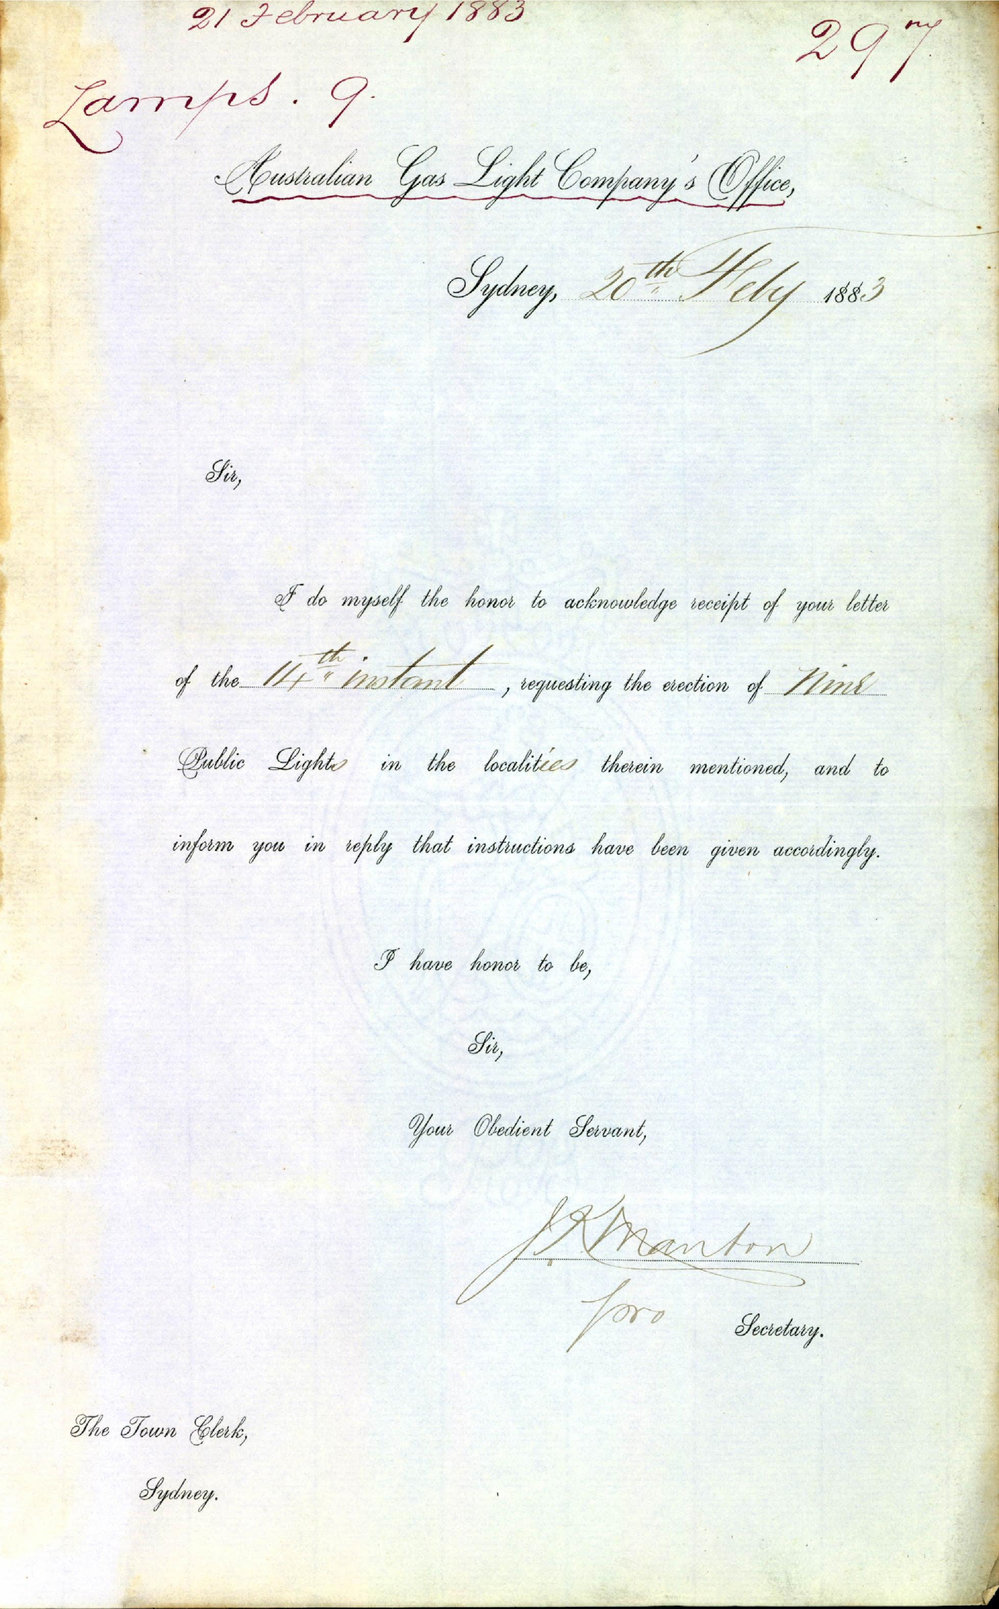 21 February 1883
297
Lamps. 9.
Australian Gas Light Company's Office,
Sydney, 20th Feby 1883
Sir,
I do myself the honor to acknowledge receipt of your letter
of the 14th instant, requesting the erection of Nine
Public Lights in the localities therein mentioned, and to
inform you in reply that instructions have been given accordingly.
I have honor to be,
Sir,
Your Obedient Servant,
J K Manton
pro Secretary.
The Town Clerk,
Sydney.